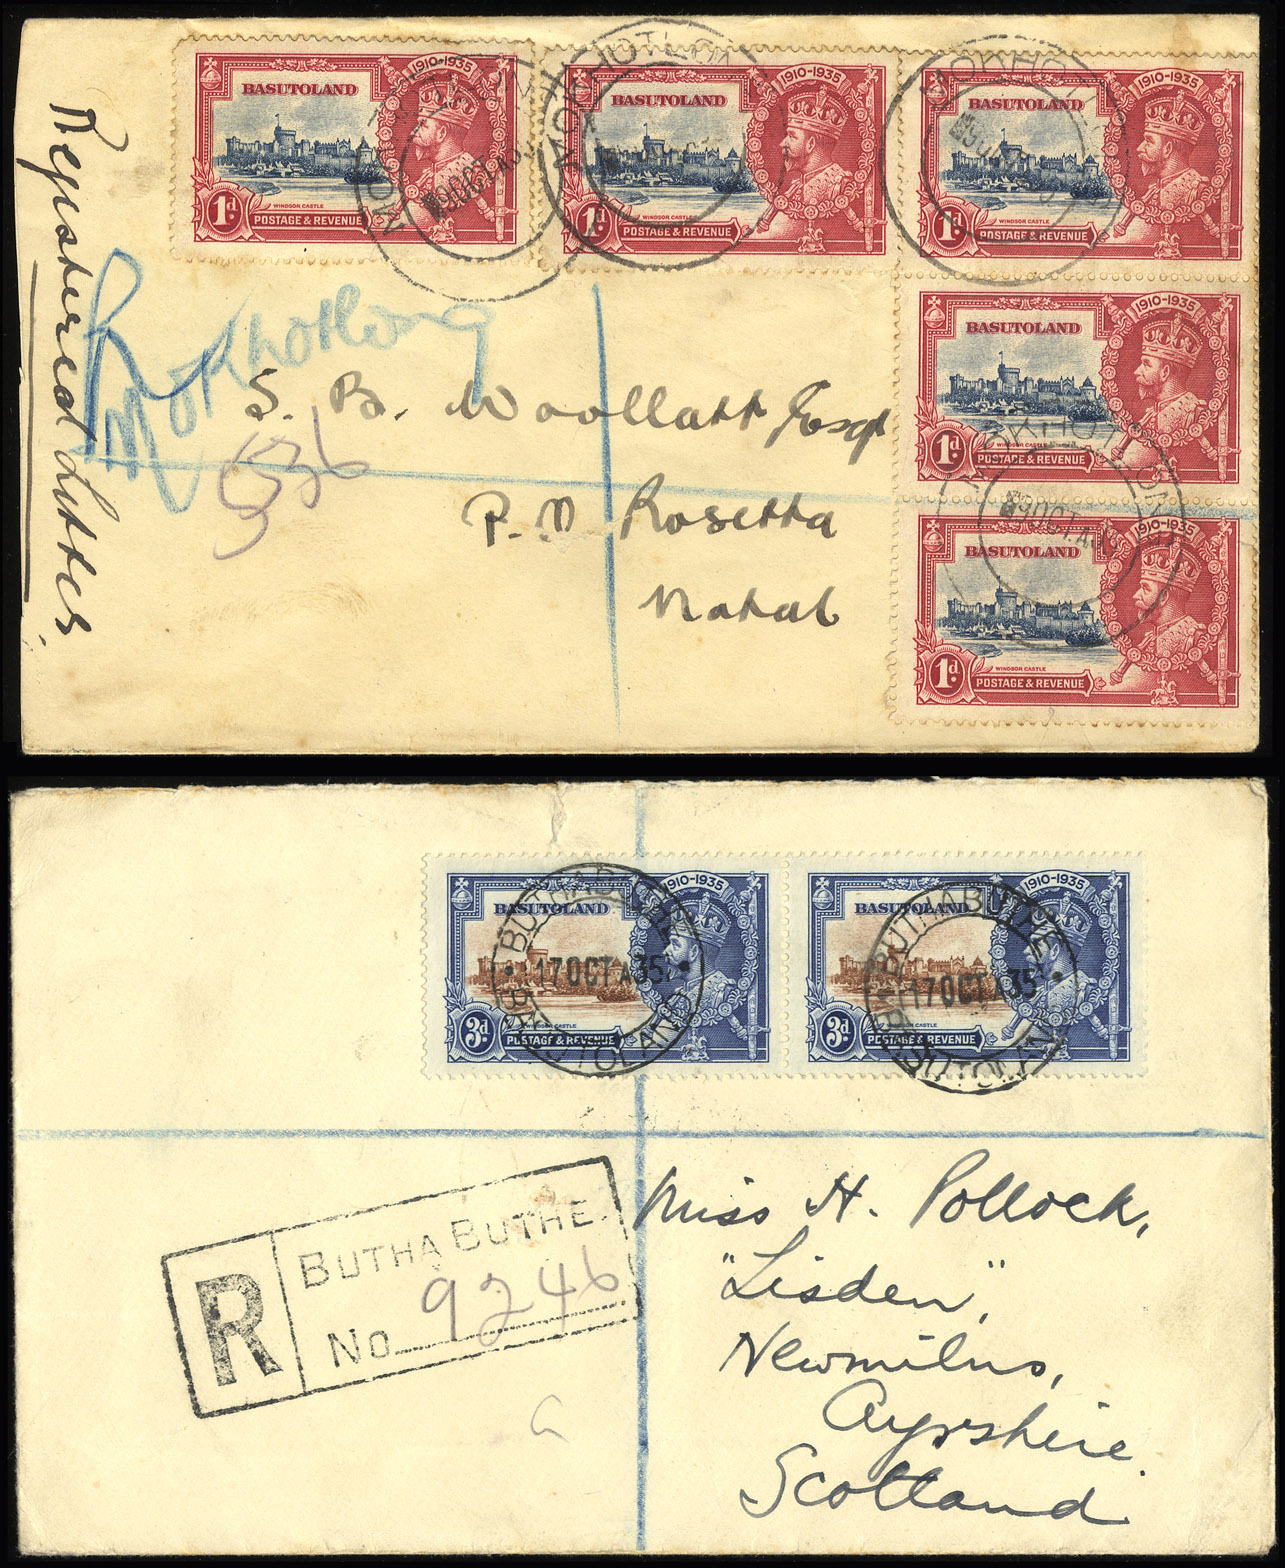 1910-1935
BASUTOLAND
WINDSOR CASTLE
1d
POSTAGE & REVENUE
MOKHOTLONG
9 OCT
1910-1935
BASUTOLAND
WINDSOR CASTLE
1d
POSTAGE & REVENUE
MOKHOTLONG
1910-1935
BASUTOLAND
WINDSOR CASTLE
1d
POSTAGE & REVENUE
MOKHOTLONG
1910-1935
BASUTOLAND
WINDSOR CASTLE
1d
POSTAGE & REVENUE
MOKHOTLONG
9 OCT
1910-1935
BASUTOLAND
WINDSOR CASTLE
1d
POSTAGE & REVENUE
Registered Letter
R
Mokhotlong
536
S. B. Woollatt Esqr
P.O. Rosetta
Natal
1910-1935
BASUTOLAND
WINDSOR CASTLE
3d
POSTAGE & REVENUE
BUTHA BUTHE
17 OCT 35
BASUTOLAND
1910-1935
BASUTOLAND
WINDSOR CASTLE
3d
POSTAGE & REVENUE
BUTHA BUTHE
17 OCT 35
BASUTOLAND
R
BUTHA BUTHE.
No 9246
Miss H. Pollock,
"Lisden",
Newmilns,
Ayrshire.
Scotland